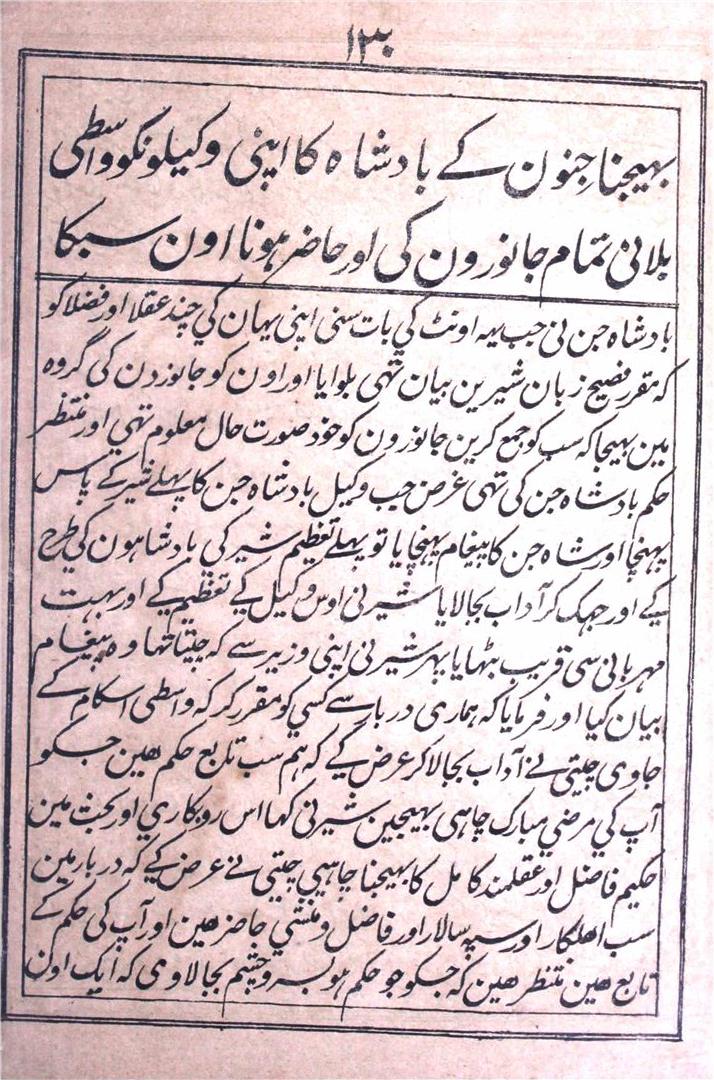 ۱۳۰
بہیجنا جنون کے بادشاہ کا اپنی وکیلونکو واسطی
بلانی تمام جانورون کی اور حاضر ہونا اون سبکا
بادشاہ جن نی جب یہہ اونٹ کي بات سنی اپنی یہان کي چند عقلا اور فضلا کو
کہ مقرر فصیح زبان شیرین بیان تہی بلوایا اور اون کو جانورون کی گروہ
مین بہیجا کہ سب کو جمع کرین جانورون کو خود صورت حال معلوم تہي اور منتظر
حکم بادشاہ جن کی تہی غرض جب وکیل بادشاہ جن کا پہلے شیر کے پاس
پہنچا اور شاہ جن کا پیغام پہنچایا تو پہلے تعظیم شیر کی بادشاہون کي طرح
کے اور جہک کر آداب بجالایا شیر نی اوس وکیل کے تعظیم کے اور بہت
مہربانی سی قریب بٹہایا پہر شیر نی اپنی وزیر سے کہ چیتا تہا وہ پیغام
بیان کیا اور فرمایا کہ ہماری دربار سے کسي کو مقرر کر کہ واسطی اسکام کے
جاوی چیتی نے آداب بجالا کر عرض کے کہ ہم سب تابع حکم ہین جسکو
آپ کي مرضي مبارک چاہی بہیجین شیر نی کہا اس روبکاري اور بحث مین
حکیم فاضل اور عقلمند کامل کا بہیجنا چاہیي چیتی نے عرض کے کہ دربار مین
سب اہلکار اور سپہ سالار اور فاضل و منشي حاضر ہین اور آپ کی حکم کے
تابع ہین منتظر ہین کہ جسکو جو حکم ہو بسر و چشم بجالاوی کہ ایک اون